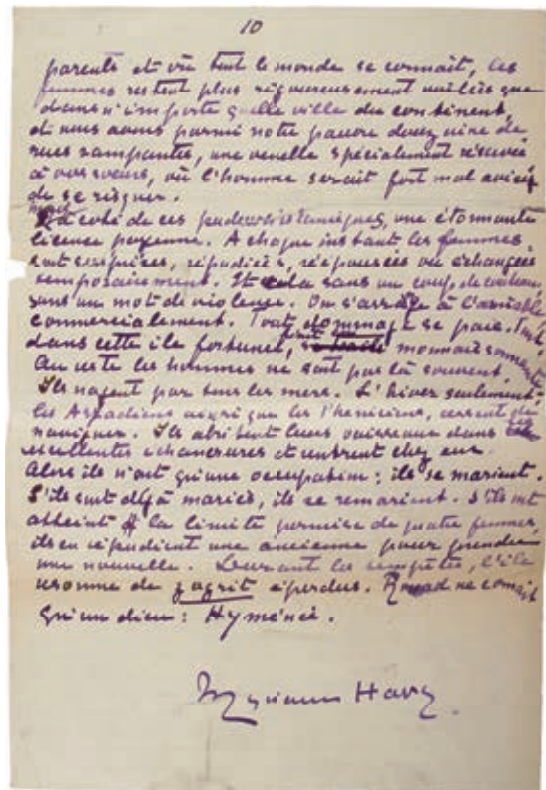 10
parents et où tout le monde se connaît, les
femmes restent plus rigoureusement voilées que
dans n'importe quelle ville du continent,
et nous avons parmi notre pauvre douzaine de
rues rampantes, une venelle spécialement réservée
à nos soeurs, où l'homme serait fort mal avisé
de se risquer.
à côté de ces pudeurs islamiques, une étonnante
licence payenne. A chaque instant les femmes
sont répudiées, réépousées ou échangées
temporairement. Et cela sans un coup de couteau,
sans un mot de violence. On s'arrange à l'amiable
commercialement. Tout dommage se paie
dans cette île fortunée, monnaie sonnante
Au reste les hommes ne sont pas là souvent.
Ils nagent par tous les mers. L'hiver seulement
les Arfadiens ainsi que les Phéniciens, cessent de
naviguer. Ils abritent leurs vaisseaux dans
excellentes échancrures et rentrent chez eux.
Alors ils n'ont qu'une occupation : ils se marient.
S'ils sont déjà mariés, ils se remarient. S'ils ont
atteint la limite permise de quatre femmes,
ils en répudient une ancienne pour prendre
une nouvelle. Durant les tempêtes, l'île
résonne de zagrit éperdus. Rouad ne connaît
qu'un dieu : Hyménée.
Myriam Harry